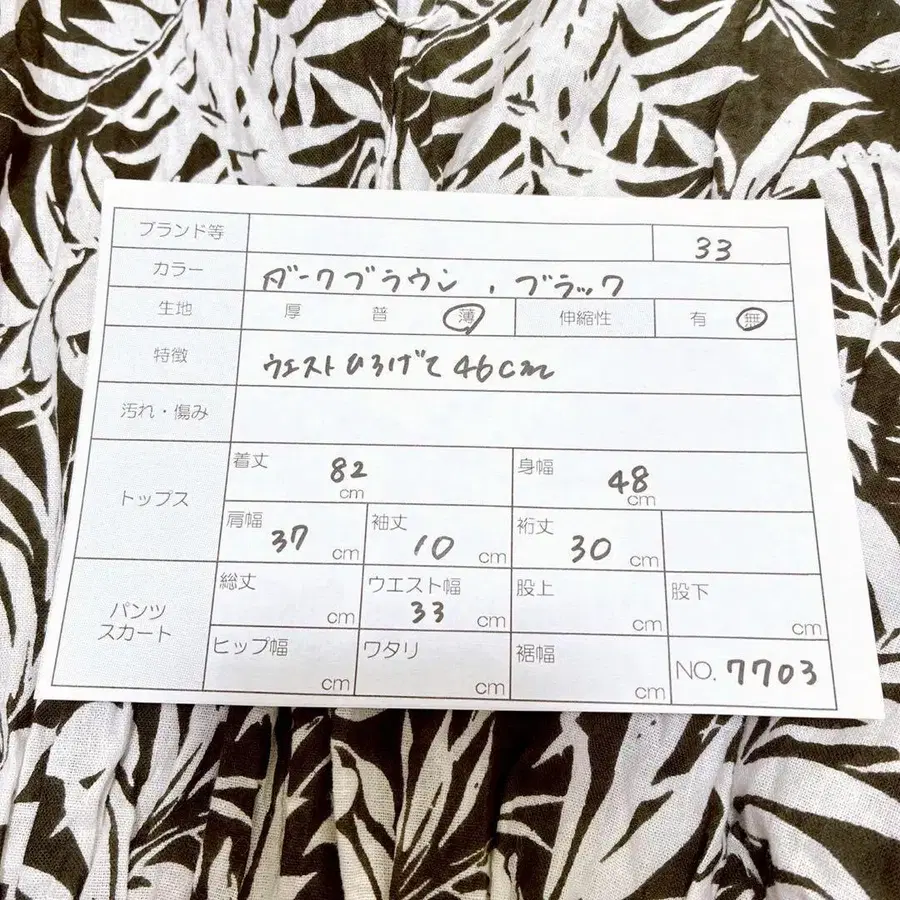 ブランド等 33
カラー ダークブラウン、ブラック
生地 厚 普 薄 伸縮性 有 無
特徴 ウエストひろげて46cm
汚れ・傷み
トップス
着丈 82 cm 身幅 48 cm
肩幅 37 cm 袖丈 10 cm 裄丈 30 cm
パンツ
スカート
総丈 cm ウエスト幅 33 cm 股上 cm 股下 cm
ヒップ幅 cm ワタリ cm 裾幅 cm NO. 7703